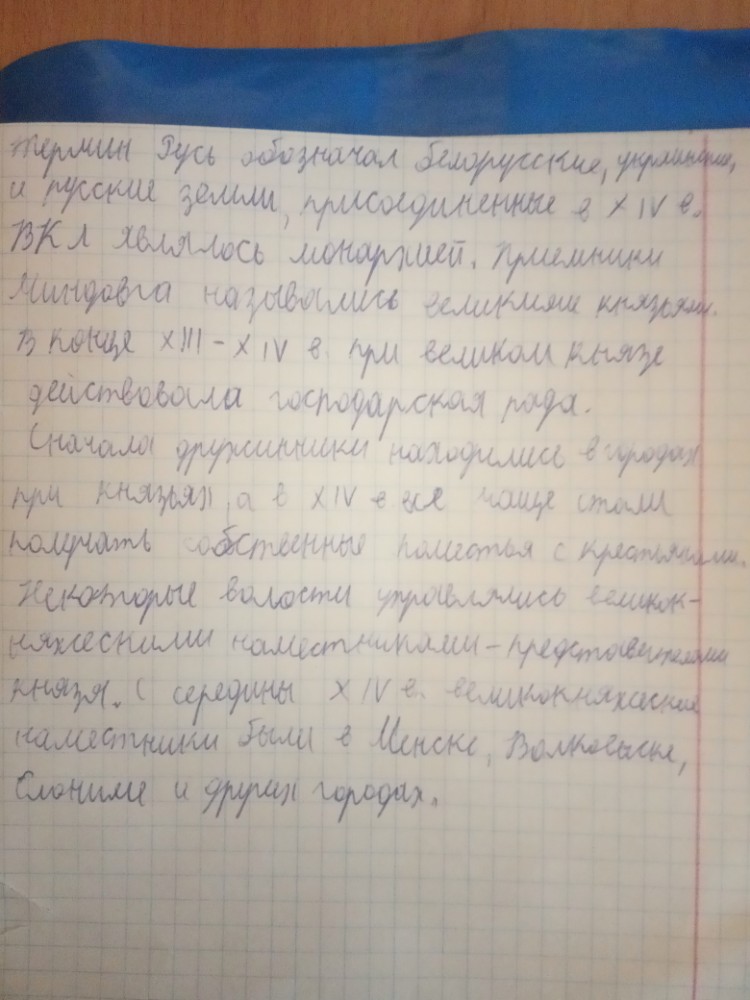 термин Русь обозначал белорусские, украинские,
и русские земли, присоединенные в XIV в.
ВКЛ являлось монархией. Приемники
Миндовга назывались великими князьями.
В конце XIII – XIV в. при великом князе
действовала господарская рада.
Сначала дружинники находились в городах
при князьях, а в XIV в все чаще стали
получать собственные поместья с крестьянами.
Некоторые волости управлялись великок-
няжескими наместниками – представителями
князя. С середины XIV в. великокняжеские
наместники были в Менске, Волковыске,
Слониме и других городах.